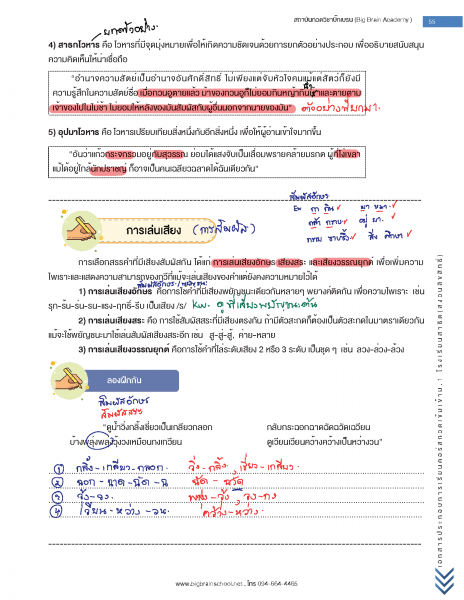 สถาบันกวดวิชาบิ๊กเบรน (Big Brain Academy)
55
ยกตัวอย่าง
4) สาธกโวหาร คือ โวหารที่มีจุดมุ่งหมายเพื่อให้เกิดความชัดเจนด้วยการยกตัวอย่างประกอบ เพื่ออธิบายสนับสนุน
ความคิดเห็นให้น่าเชื่อถือ
"อำนาจความสัตย์เป็นอำนาจอันศักดิ์สิทธิ์ ไม่เพียงแต่จับหัวใจคนแม้แต่สัตว์ก็ยังมี
ความรู้สึกในความสัตย์ซื่อ เมื่อกวนอูตายแล้ว ม้าของกวนอูก็ไม่ยอมกินหญ้ากินน้ำและตายตาม
เจ้าของไปในไม่ช้า ไม่ยอมให้หลังของมันสัมผัสกับผู้อื่นนอกจากนายของมัน"
ตัวอย่างที่ยกมา
5) อุปมาโวหาร คือ โวหารเปรียบเทียบสิ่งหนึ่งกับอีกสิ่งหนึ่ง เพื่อให้ผู้อ่านเข้าใจมากขึ้น
"อันว่าแก้วกระจกรวมอยู่กับสุวรรณ ย่อมได้แสงจับเป็นเลื่อมพรายคล้ายมรกต ผู้ที่โง่เขลา
แม้ได้อยู่ใกล้นักปราชญ์ ก็อาจเป็นคนเฉลียวฉลาดได้ฉันเดียวกัน"
สัมผัสอักษร
การเล่นเสียง (การสัมผัส)
การเลือกสรรคำที่มีเสียงสัมผัสกัน ได้แก่ การเล่นเสียงอักษร เสียงสระ และเสียงวรรณยุกต์ เพื่อเพิ่มความ
ไพเราะและแสดงความสามารถของกวีที่แม้จะเล่นเสียงของคำแต่ยังคงความหมายไว้ได้
1) การเล่นเสียงอักษร คือการใช้คำที่มีเสียงพยัญชนะเดียวกันหลายๆ พยางค์ติดกัน เพื่อความไพเราะ เช่น
รุก-ร้น-ร่น-รน-แรง-ฤทธิ์-รีบ เป็นเสียง /ร/
2) การเล่นเสียงสระ คือ การใช้สัมผัสสระที่มีเสียงตรงกัน ถ้ามีตัวสะกดก็ต้องเป็นตัวสะกดในมาตราเดียวกัน
แม้จะใช้พยัญชนะมาใช้เล่นสัมผัสเสียงสระอีก เช่น สู่-สู่-สู้, ค่าย-หลาย
3) การเล่นเสียงวรรณยุกต์ คือการใช้คำที่ไล่ระดับเสียง 2 หรือ 3 ระดับ เป็นชุด ๆ เช่น ลวง-ล่วง-ล้วง
ลองฝึกกัน
สัมผัสอักษร
สัมผัสสระ
"ดูน้ำวิ่งกลิ้งเชี่ยวเป็นเกลียวกลอก กลับกระฉอกฉาดฉัดฉวัดเฉวียน
บ้างพลุ่งพลุ่งวุ้งวงเหมือนกงเกวียน ดูเวียนเวียนคว้างคว้างเป็นหว่างวน"
① กลิ้ง-เกลียว-กลอก. วิ่ง-กลิ้ง, เชี่ยว-เกลียว.
② ฉอก-ฉาด-ฉัด-ฉ ฉัด-ฉวัด
③ วุ้ง-วง. พลุ่ง-วุ้ง, วง-กง
④ เวียน-หว่าง-วน. คว้าง-หว่าง.
www.bigbrainschool.net , โทร 094-664-4465